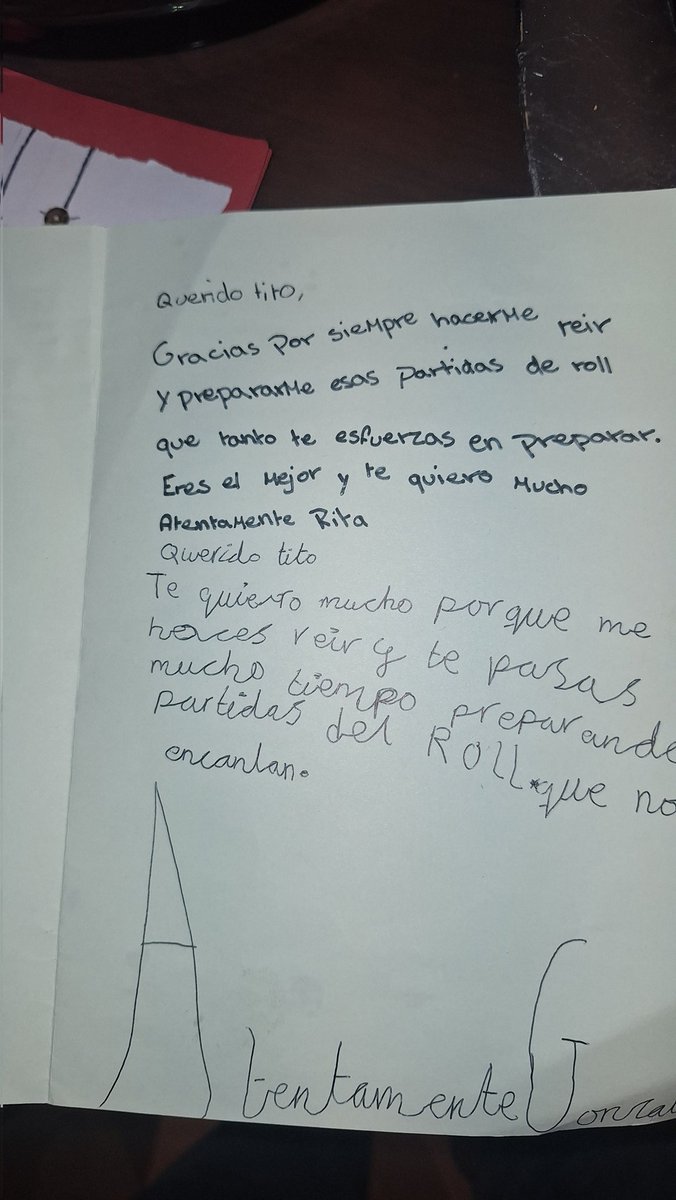 Querido tito,
Gracias por siempre hacerme reir
y prepararme esas partidas de roll
que tanto te esfuerzas en preparar.
Eres el mejor y te quiero mucho
Atentamente Rita
Querido tito
Te quiero mucho porque me
haces reir y te pasas
mucho tiempo preparando
partidas del ROLL que no
encantan.
Atentamente Gonzal